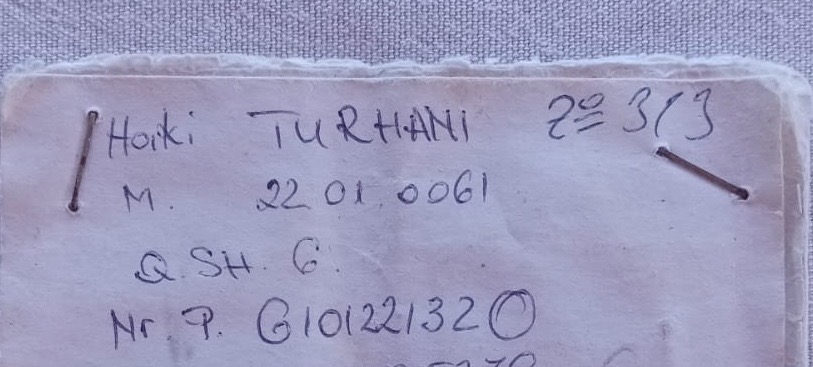 Haki TURHANI 7º= 3/3
M. 22 01.0061
Q. SH. G.
Nr. P. G10122132O